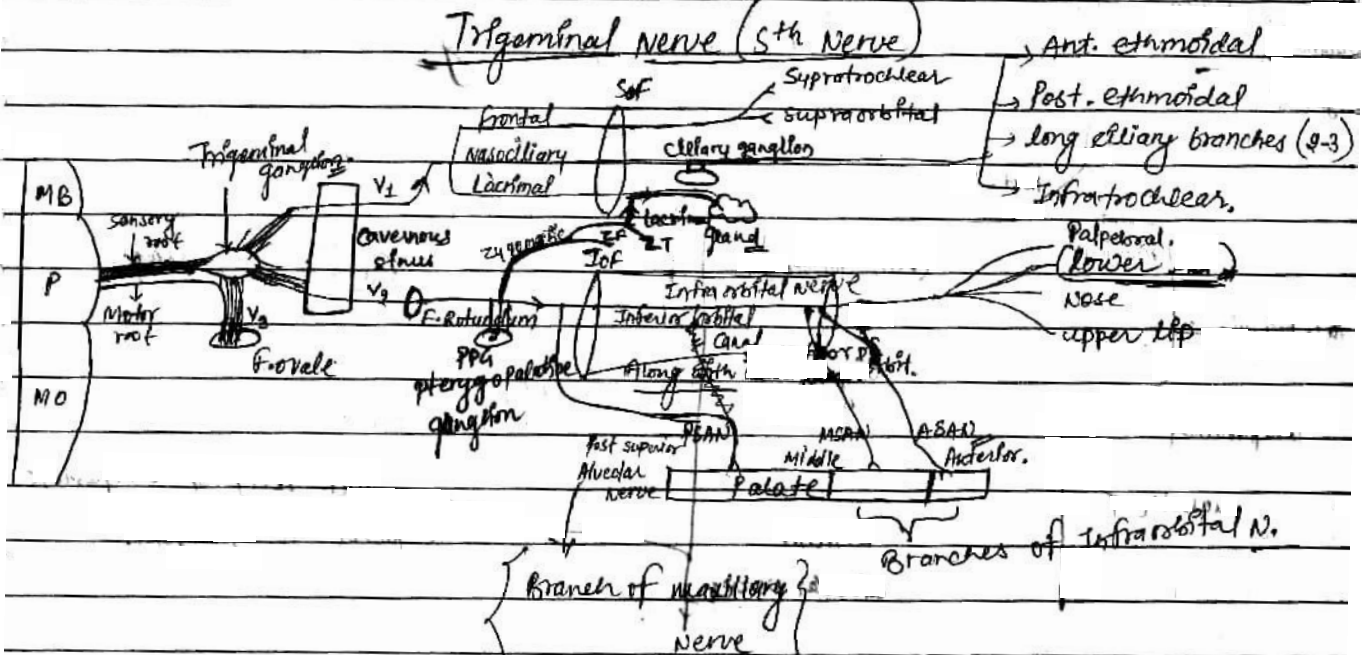 Trigeminal Nerve (5th Nerve)
→ Ant. ethmoidal
→ Post. ethmoidal
→ long ciliary branches (2-3)
→ Infratrochlear.
Supratrochlear
supraorbital
SOF
frontal
Nasociliary
Lacrimal
Cilary ganglion
Trigeminal
ganglion.
V1
MB
P
MO
Sensory
root
Motor
root
V3
F.ovale
Cavernous
sinus
V2
F.Rotundum
Zygomatic
ZF
ZT
Lacrim
gland
IOF
PPG
pterygopalatine
ganglion
Infraorbital Nerve
Inferior orbital
Canal
Along
Palpebral.
(lower)
Nose
upper lip
PSAN
MSAN
ASAN
Post superior
Alveolar
Nerve
Middle
Anterior.
Palate
Branches of Infraorbital N.
{Branch of maxillary}
Nerve